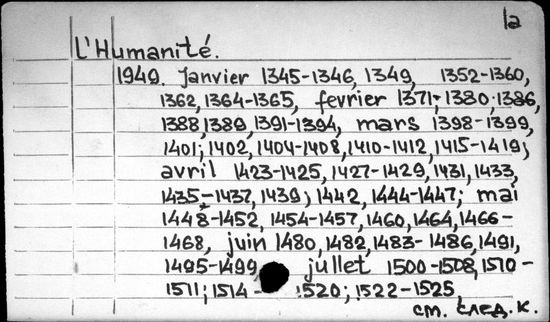 1a
L'Humanité.
1949. Janvier 1345-1346, 1349, 1352-1360,
1362, 1364-1365, fevrier 1371; 1380; 1386,
1388, 1389, 1391-1394, mars 1398-1399,
1401; 1402, 1404-1408, 1410-1412, 1415-1419;
avril 1423-1425, 1427-1429, 1431, 1433,
1435-1437, 1439; 1442, 1444-1447; mai
1448-1452, 1454-1457, 1460, 1464, 1466-
1468, juin 1480, 1482, 1483-1486, 1491,
1495-1499 jullet 1500-1508, 1510-
1511; 1514- 1520; 1522-1525
см. след. к.